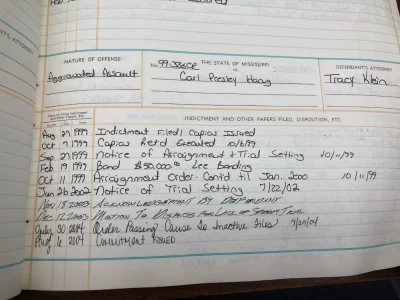 NATURE OF OFFENSE:
Aggravated Assault
No. 99-336CR THE STATE OF MISSISSIPPI
vs
Carl Presley Haag
DEFENDANT'S ATTORNEY
Tracy Klein
INDICTMENT AND OTHER PAPERS FILED, DISPOSITION, ETC.
Aug 27 1999 Indictment Filed / Capias Issued
Oct 7 1999 Capias Ret'd Executed 10/6/99
Sep 27 1999 Notice of Arraignment & Trial Setting 10/11/99
Feb 19 1999 Bond $50,000 Lee Bonding
Oct 11 1999 Arraignment Order- Contd til Jan. 2000 10/11/99
Jan 26 2002 Notice of Trial Setting 7/22/02
Nov 18 2003 Acknowledgement By Defendant
Dec 12 2003 Motion To Dismiss For Lack of Speedy Trial
July 30 2004 Order Passing Cause To Inactive Files
Aug 6 2004 Commitment Issued